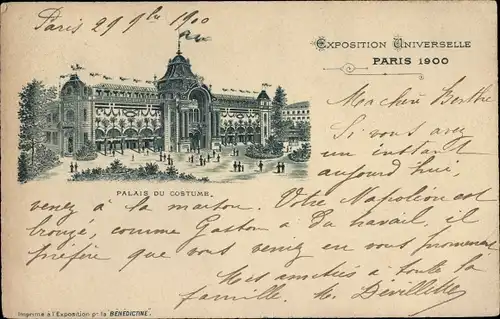 Paris 29 9bre 1900
EXPOSITION UNIVERSELLE
PARIS 1900
PALAIS DU COSTUME.
Ma chère Berthe
Si vous avez
un instant
aujourd'hui,
venez à la maison. Votre Napoléon est
trouvé, comme Gaston a du travail, il
préfère que vous veniez en vous promenant
Mes amitiés à toute la
famille. M. Devillette
Imprimé à l'Exposition pr la BÉNÉDICTINE.